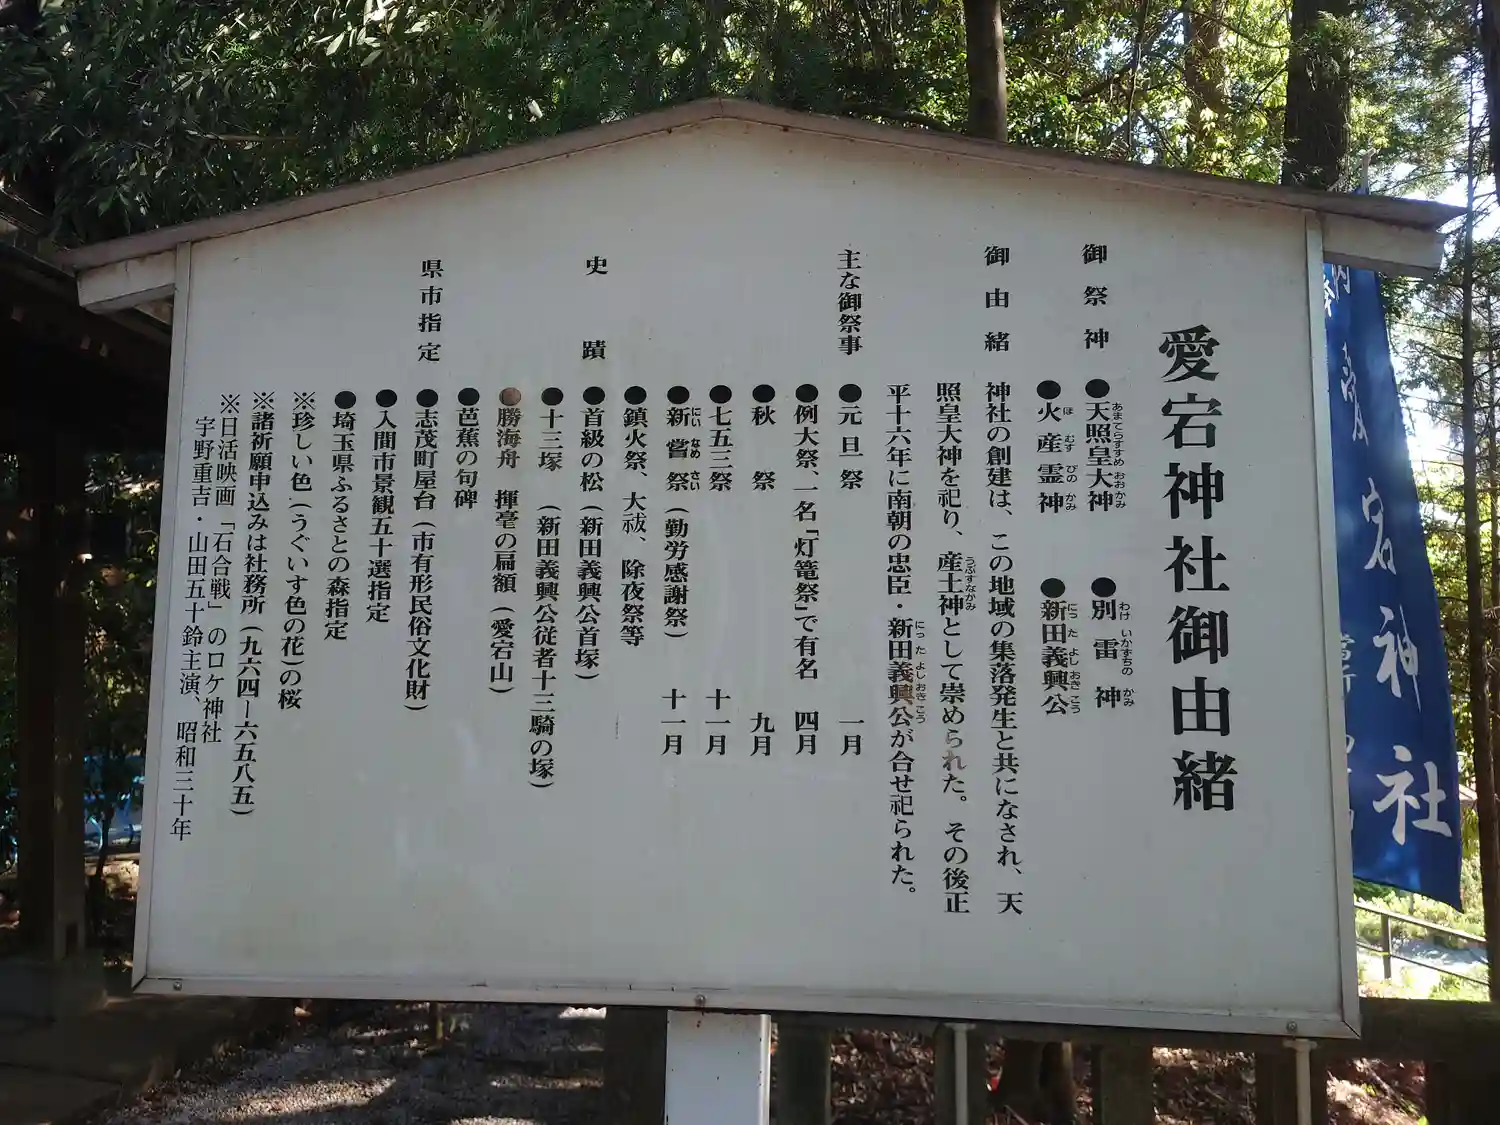 愛宕神社御由緒
御祭神
●天照皇大神
あまてらすすめおおかみ
●別雷神
わけいかずちのかみ
●火産霊神
ほむすびのかみ
●新田義興公
にったよしおきこう
御由緒
神社の創建は、この地域の集落発生と共になされ、天
照皇大神を祀り、産土神として崇められた。その後正
うぶすながみ
平十六年に南朝の忠臣・新田義興公が合せ祀られた。
にったよしおきこう
主な御祭事
●元旦祭 一月
●例大祭、一名「灯篭祭」で有名 四月
●秋祭 九月
●七五三祭 十一月
●新嘗祭(勤労感謝祭) 十一月
にいなめさい
●鎮火祭、大祓、除夜祭等
史蹟
●首級の松(新田義興公首塚)
●十三塚 (新田義興公従者十三騎の塚)
●勝海舟 揮毫の扁額(愛宕山)
●芭蕉の句碑
県市指定
●志茂町屋台(市有形民俗文化財)
●入間市景観五十選指定
●埼玉県ふるさとの森指定
※珍しい色(うぐいす色の花)の桜
※諸祈願申込みは社務所(九六四ー六五八五)
※日活映画「石合戦」のロケ神社
宇野重吉・山田五十鈴主演、昭和三十年
愛宕神社